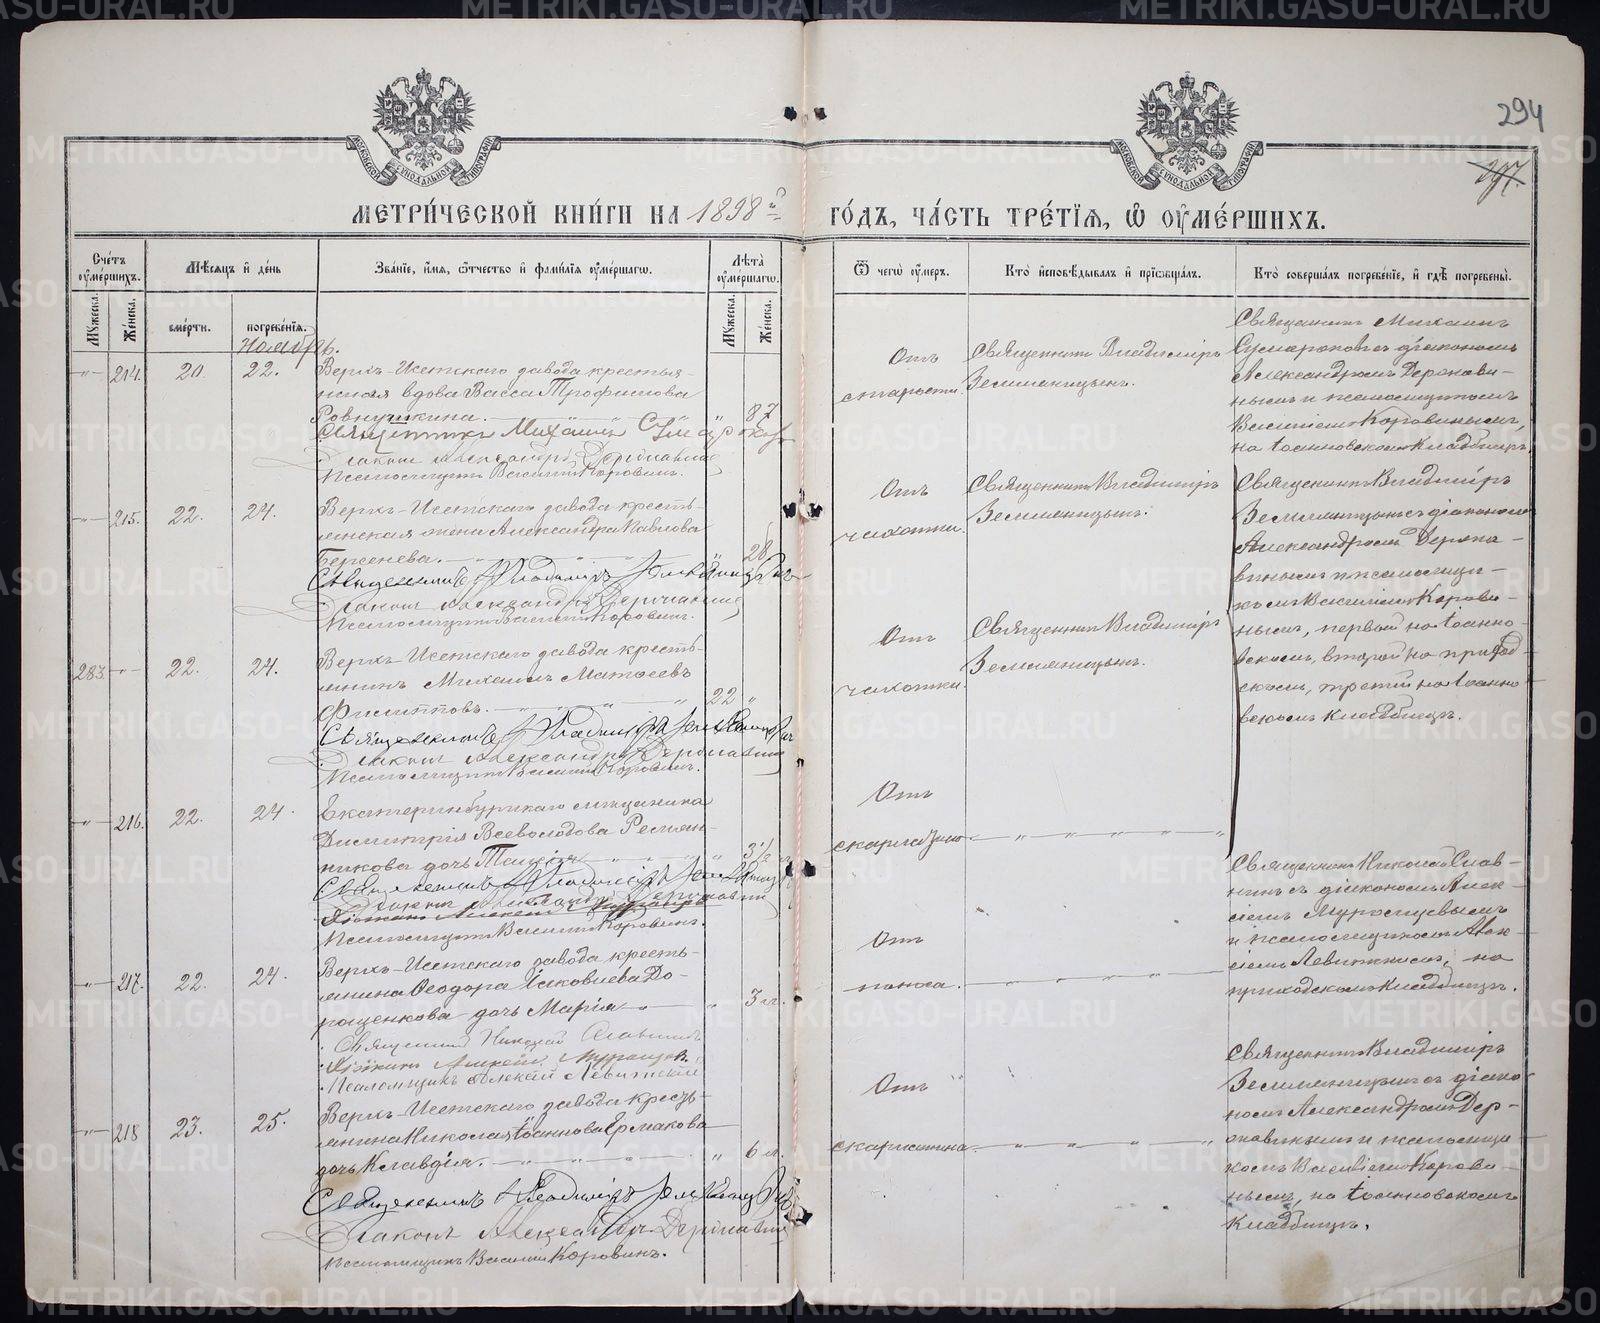 294
297.
МОСКОВСКОЙ СѴНОДАЛЬНОЙ ТИПОГРАФІИ
МОСКОВСКОЙ СѴНОДАЛЬНОЙ ТИПОГРАФІИ
МЕТРИ́ЧЕСКОЙ КНИ́ГИ НА 1898й ГО́ДЪ, ЧА́СТЬ ТРЕ́ТІѦ, Ѡ ОУ҆МЕ́РШИХЪ.
Сче́тъ оу҆ме́ршихъ.
Мꙋжеска.
Же́нска.
Мѣсѧцъ и҆ де́нь
сме́рти.
погребе́нїѧ.
Зва́нїе, и҆́мѧ, ѻ҆́тчество и҆ фами́лїѧ оу҆ме́ршагѡ.
Лѣта̀ оу҆ме́ршагѡ.
Мꙋжеска.
Же́нска.
Ѿ чегѡ̀ оу҆́меръ.
Кто̀ и҆сповѣ́дывалъ и҆ прїѡбща́лъ.
Кто̀ соверша́лъ погребе́нїе, и҆ гдѣ̀ погребены̀.
Ноябрь.
" 214. 20. 22.
Верхъ-Исетскаго завода крестьян-
ская вдова Васса Трофимова
Ровнушкина. " 87
Священникъ Михаилъ Сумароковъ
Діаконъ Александръ Державинъ
Псаломщикъ Василій Коровинъ.
Отъ
старости.
Священникъ Владиміръ
Земляницынъ.
Священникъ Михаилъ
Сумароковъ съ діакономъ
Александромъ Держави-
нымъ и псаломщикомъ
Василіемъ Коровинымъ,
на Іоанновскомъ кладбищѣ.
" 215. 22. 24.
Верхъ-Исетскаго завода кресть-
янская жена Александра Павлова
Берсенева. 28
Священникъ Владиміръ Земляницынъ
Діаконъ Александръ Державинъ
Псаломщикъ Василій Коровинъ.
Отъ
чахотки.
Священникъ Владиміръ
Земляницынъ.
Священникъ Владиміръ
Земляницынъ съ діакономъ
Александромъ Держа-
винымъ и псаломщи-
комъ Василіемъ Корови-
нымъ, первой на Іоанно-
вскомъ, второй на приход-
скомъ, третій на Іоанно-
вскомъ кладбищѣ.
283. " 22. 24.
Верхъ-Исетскаго завода кресть-
янинъ Михаилъ Матвеевъ
Филипповъ. 22 "
Священникъ Владиміръ Земляницынъ
Діаконъ Александръ Державинъ
Псаломщикъ Василій Коровинъ.
Отъ
чахотки.
Священникъ Владиміръ
Земляницынъ.
" 216. 22. 24.
Екатеринбургскаго мѣщанина
Димитрія Всеволодова Ремян-
никова дочь Таисія "
Священникъ Владиміръ Земляницынъ
Діаконъ Александръ Державинъ
Псаломщикъ Василій Коровинъ.
Отъ
" 217. 22. 24.
Верхъ-Исетскаго завода кресть-
янина Ѳеодора Іаковлева До-
рощенкова дочь Марія " 3
Священникъ Николай Славнинъ
Діаконъ Алексѣй Мурощевъ
Псаломщикъ Алексѣй Левитскій
Отъ
поноса.
Священникъ Николай Слав-
нинъ съ діакономъ Алек-
сіемъ
и псаломщикомъ Алек-
сіемъ Левитскимъ, на
приходскомъ кладбищѣ.
" 218 23. 25.
Верхъ-Исетскаго завода кресть-
янина Николая Іоаннова Ермакова
дочь Клавдія. " 6
Священникъ Владиміръ Земляницынъ
Діаконъ Александръ Державинъ
Псаломщикъ Василій Коровинъ.
Отъ
скарлатина.
Священникъ Владиміръ
Земляницынъ съ діако-
номъ Александромъ Дер-
жавинымъ и псаломщи-
комъ Василіемъ Корови-
нымъ, на Іоанновскомъ
кладбищѣ.
METRIKI.GASO-URAL.RU